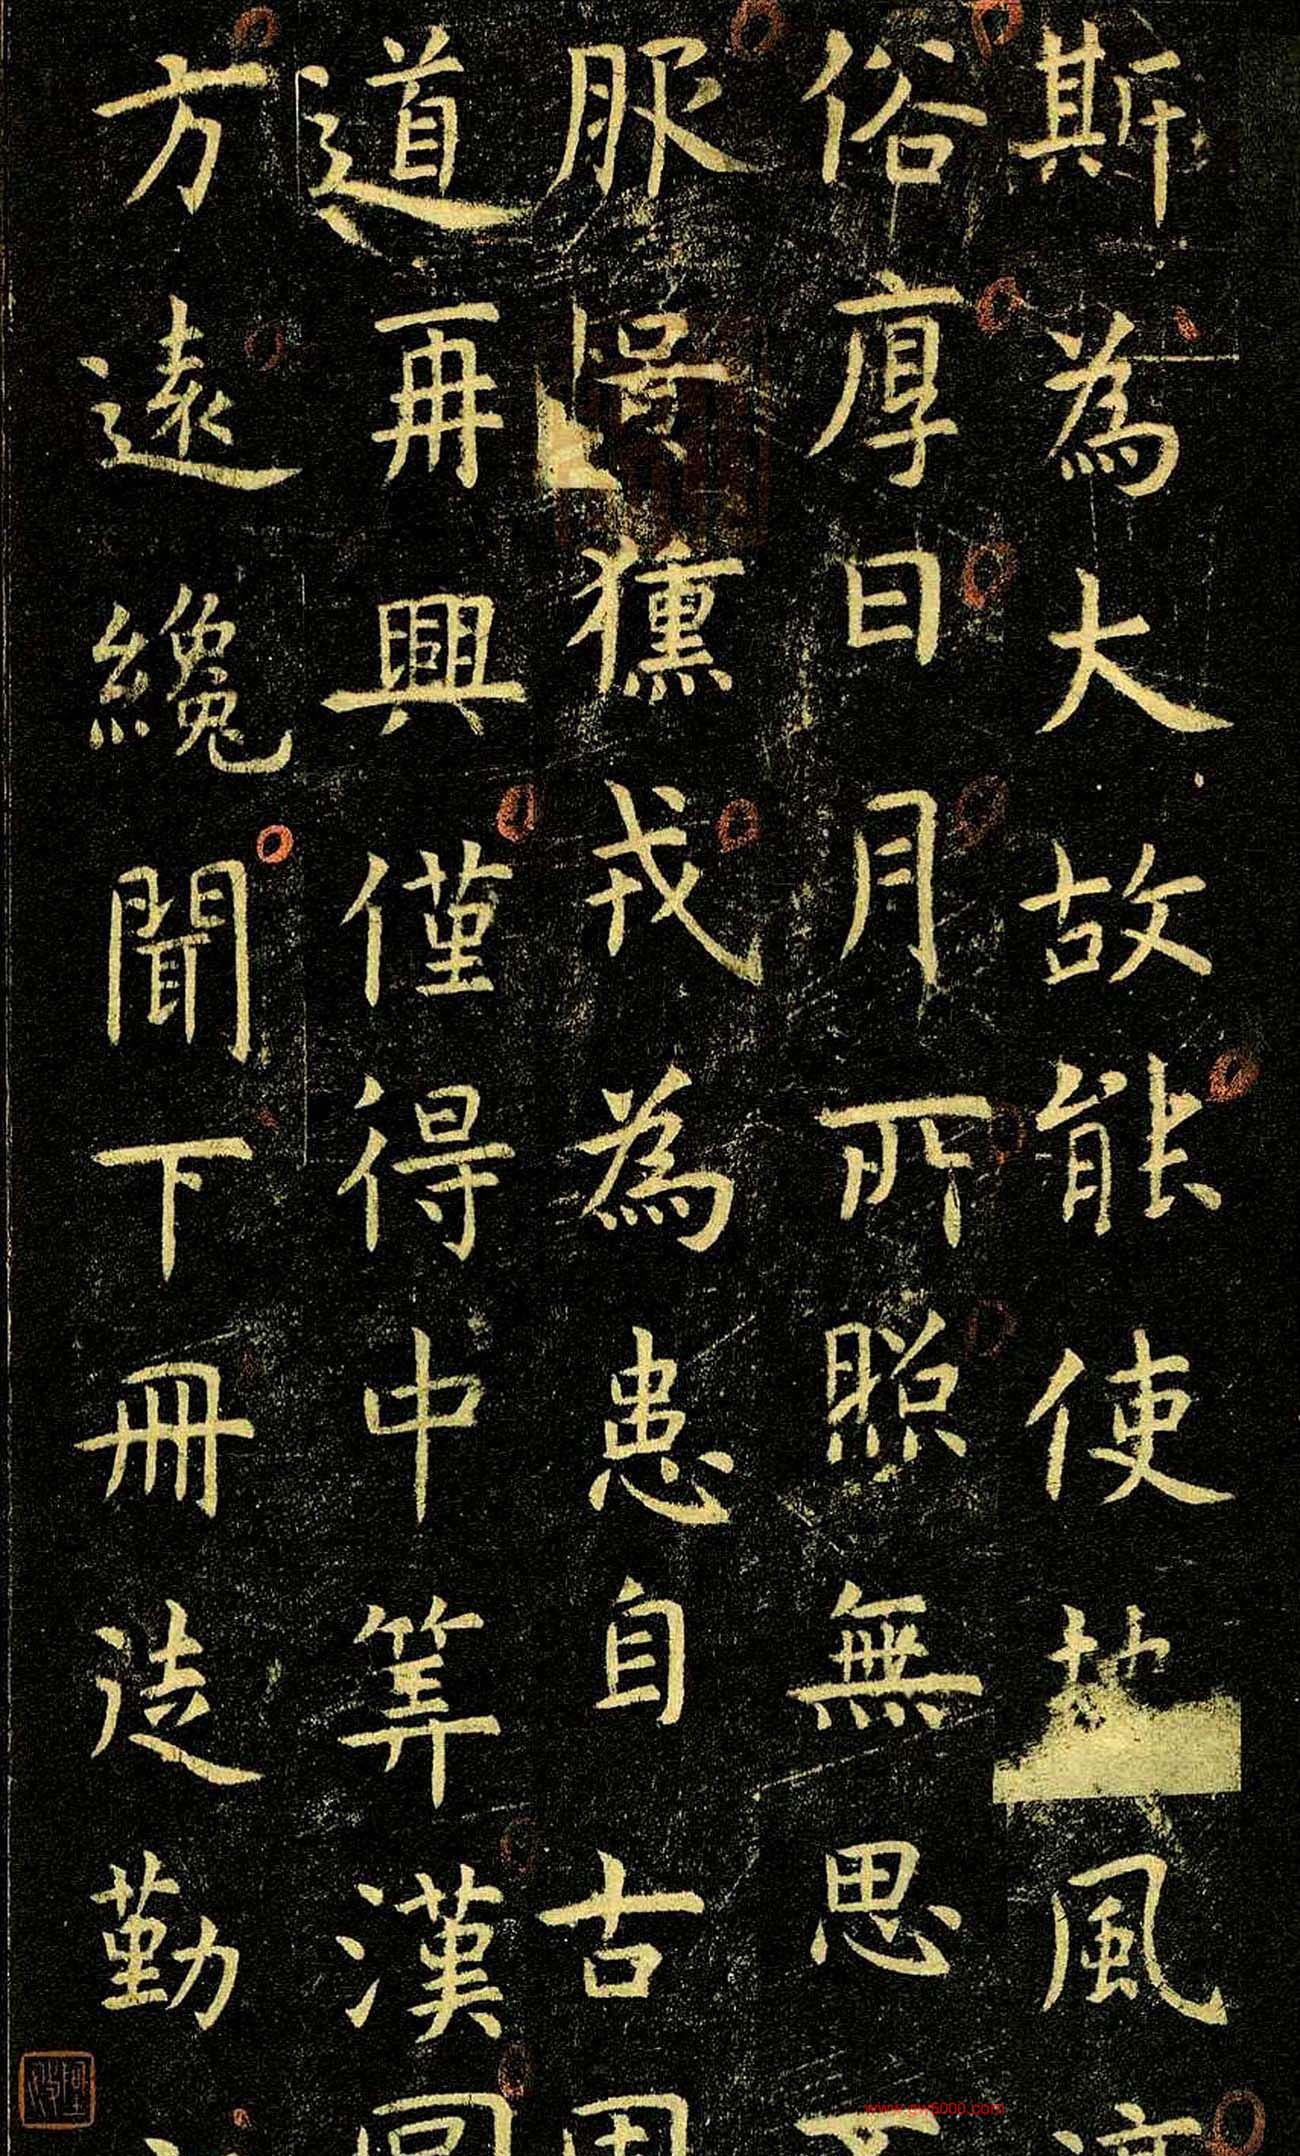 斯為大故能使地風
俗厚日月所照無思
服獯戎為患自古
道再興僅得中筭漢
方遠纔聞下冊徒勤
www.gw5000.com